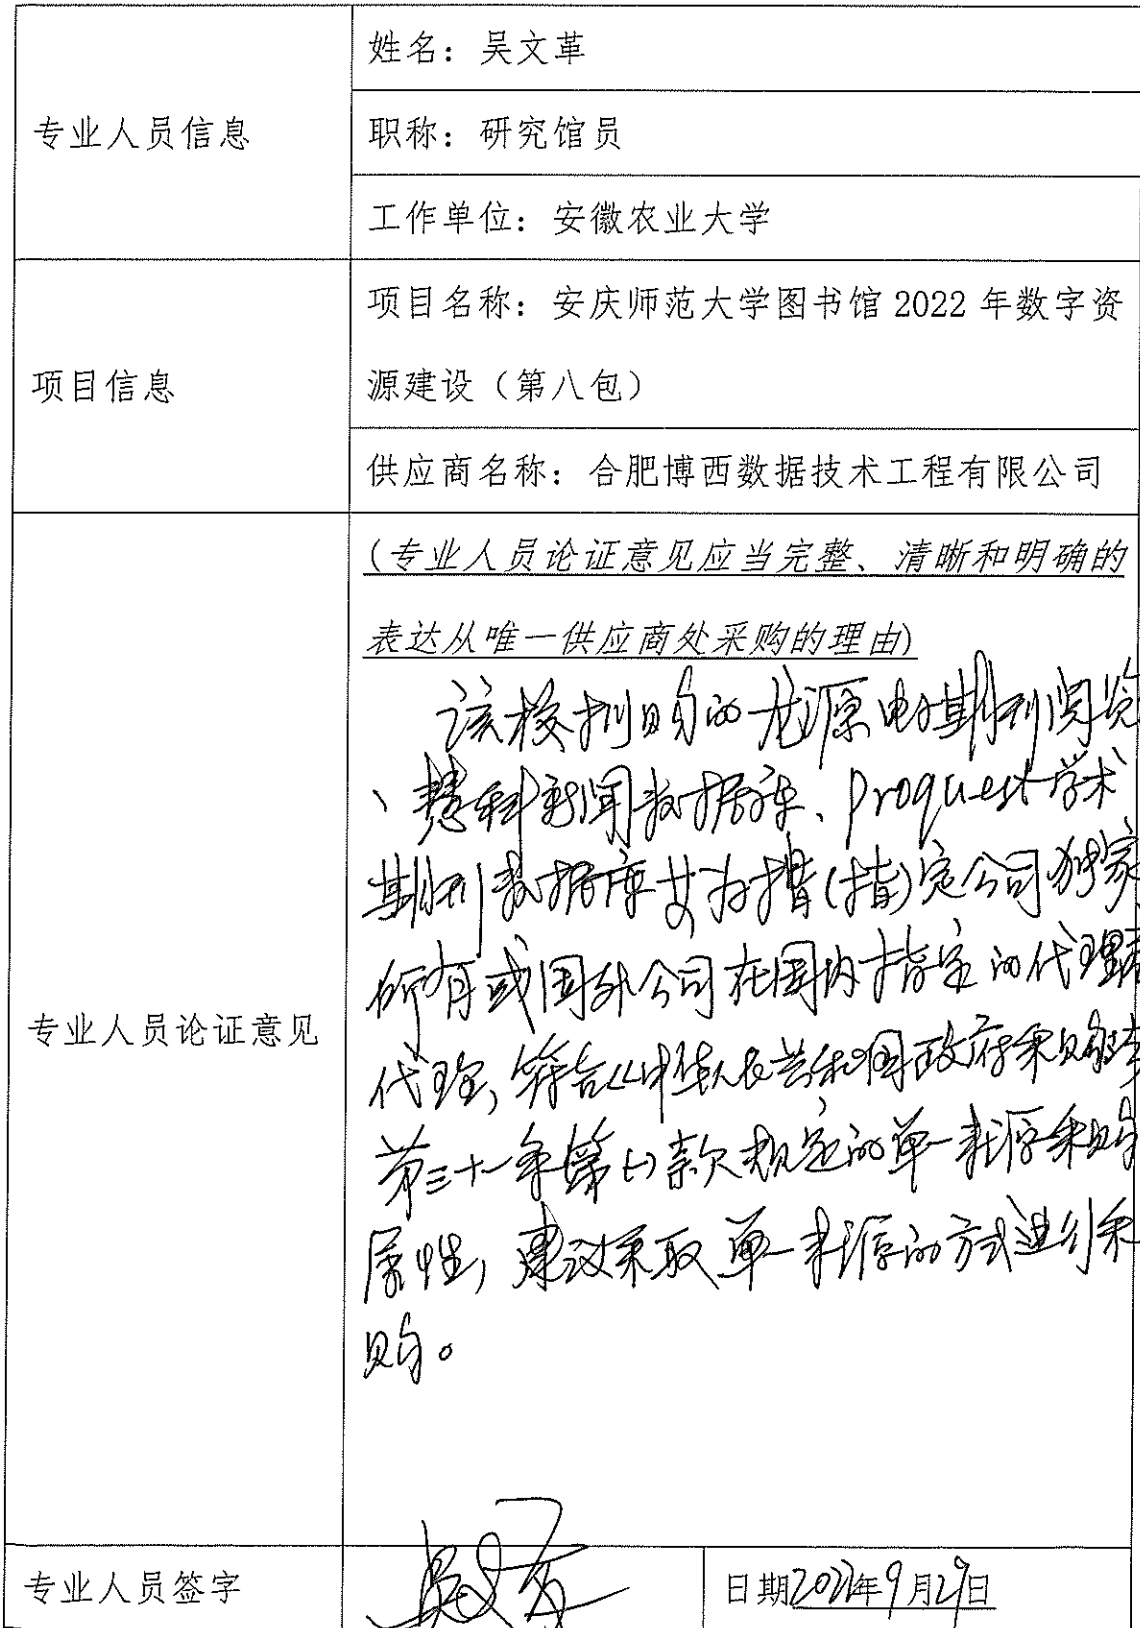 姓名：吴文革
专业人员信息
职称：研究馆员
工作单位：安徽农业大学
项目名称：安庆师范大学图书馆 2022 年数字资
项目信息
源建设（第八包）
供应商名称：合肥博西数据技术工程有限公司
(专业人员论证意见应当完整、清晰和明确的
表达从唯一供应商处采购的理由)
该校拟购的龙源电子期刊阅览
、慧科新闻数据库、Proquest学术
期刊数据库其为指(指)定公司独家
所有或国外公司在国内指定的代理商
专业人员论证意见
代理，符合《中华人民共和国政府采购法
第三十一条第(一)款规定的单一来源采购
属性，建议采取单一来源的方式进行采
购。
专业人员签字
吴文革
日期2022年9月29日